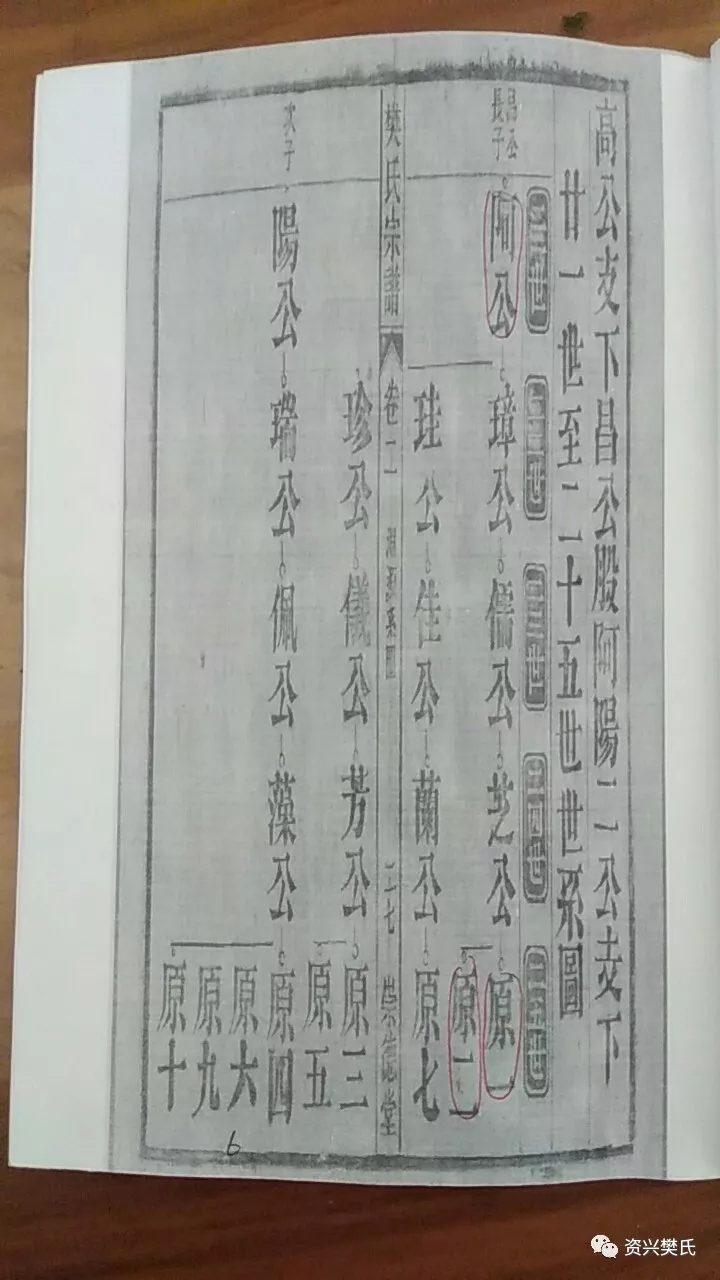 高公支下昌公股阿陽二公支下
廿一世至二十五世世系圖
廿一世
廿二世
廿三世
廿四世
廿五世
昌公
長子
阿公
璋公
儒公
芝公
原一
原二
珪公
佳公
蘭公
原七
樊氏宗譜
卷二
淵源系圖
二七
崇德堂
珍公
儀公
芳公
原三
原五
次子
陽公
瑞公
佩公
藻公
原四
原六
原九
原十
6
资兴樊氏